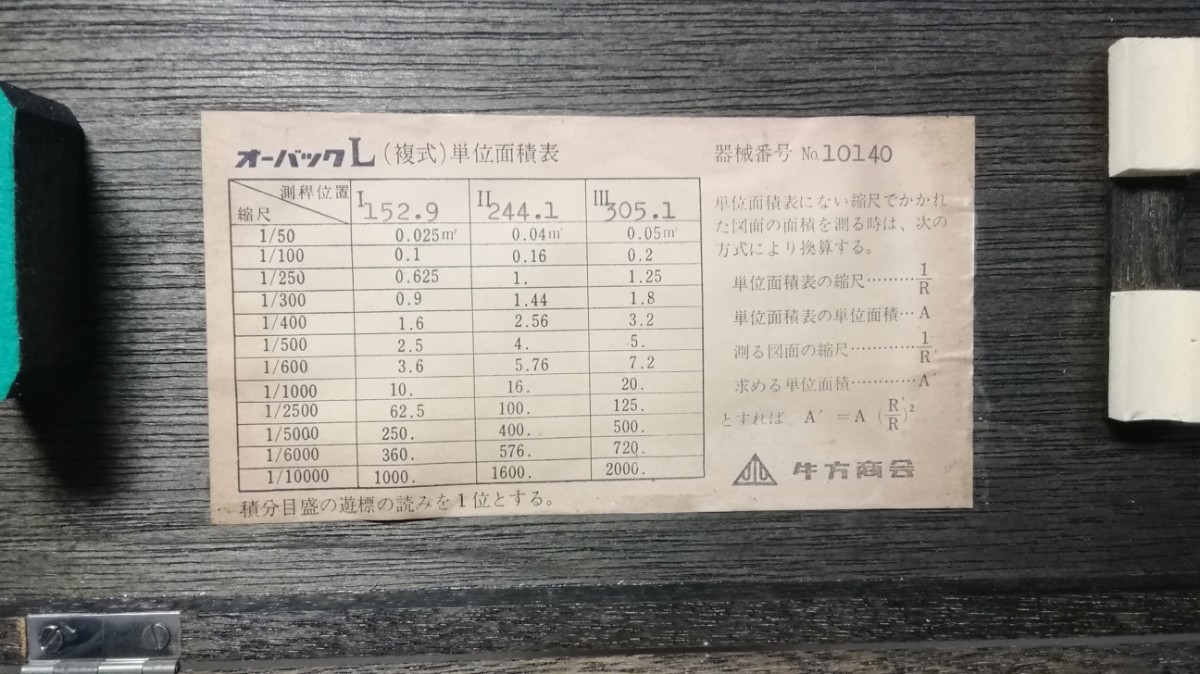 オーバックL(複式)単位面積表
器械番号 No.10140
測稈位置 I 152.9 II 244.1 III 305.1
縮尺
1/50 0.025㎡ 0.04㎡ 0.05㎡
1/100 0.1 0.16 0.2
1/250 0.625 1. 1.25
1/300 0.9 1.44 1.8
1/400 1.6 2.56 3.2
1/500 2.5 4. 5.
1/600 3.6 5.76 7.2
1/1000 10. 16. 20.
1/2500 62.5 100. 125.
1/5000 250. 400. 500.
1/6000 360. 576. 720.
1/10000 1000. 1600. 2000.
積分目盛の遊標の読みを1位とする。
単位面積表にない縮尺でかかれ
た図面の面積を測る時は、次の
方式により換算する。
単位面積表の縮尺………1/R
単位面積表の単位面積…A
測る図面の縮尺…………1/R'
求める単位面積…………A'
とすれば A' =A (R'/R)²
牛方商会